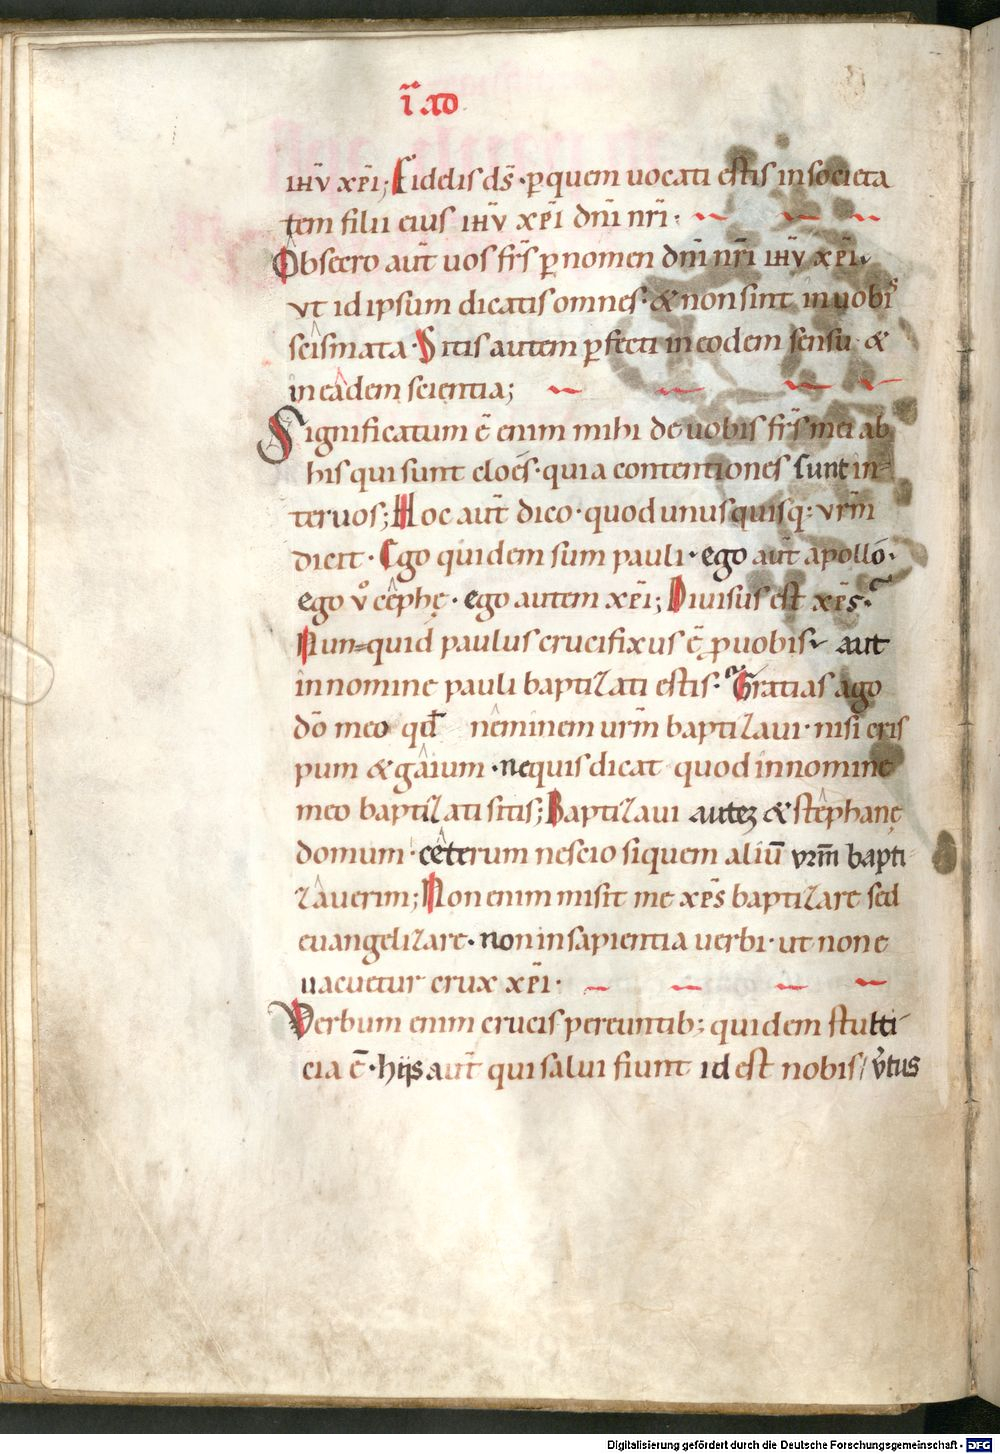 i᷒ ad
ihv̄ xp̄i; Fidelis ds̄ · ꝑ quem uocati estis in societa
tem filii eius ihv̄ xp̄i dn̄i nr̄i ·
Obsecro aut̄ uos fr̄s ꝑ nomen dn̄i nr̄i ihv̄ xp̄i ·
vt id ipsum dicatis omnes · & non sint in uobis
scismata · Sitis autem ꝑfecti in eodem sensu · &
in eadem scientia;
Significatum ē enim mihi de uobis fr̄s mei ab
his qui sunt cloes · quia contentiones sunt in-
ter uos; Hoc aut̄ dico · quod unusquisq: vrm̄
dicit · Ego quidem sum pauli · ego aut̄ apollo ·
ego vͦ cephę · ego autem xp̄i; Diuisus est xp̄s ·
Nun=quid paulus crucifixus ē ꝓ uobis · aut
in nomine pauli baptizati estis · Gratias ago
dō meo qd̄ neminem vrm̄ baptizaui · nisi cris
pum & gaium · nequis dicat quod in nomine
meo baptizati sitis; Baptizaui autez & stephanę
domum · ceterum nescio si quem aliū vrm̄ bapti-
zauerim; Non enim misit me xp̄s baptizare sed
euangelizare · non in sapientia uerbi · ut non e
uacuetur crux xp̄i ·
Verbum enim crucis pereuntib; quidem stulti-
cia ē · hijs aut̄ qui salui fiunt id est nobis / v̓tus
Digitalisierung gefördert durch die Deutsche Forschungsgemeinschaft - DFG